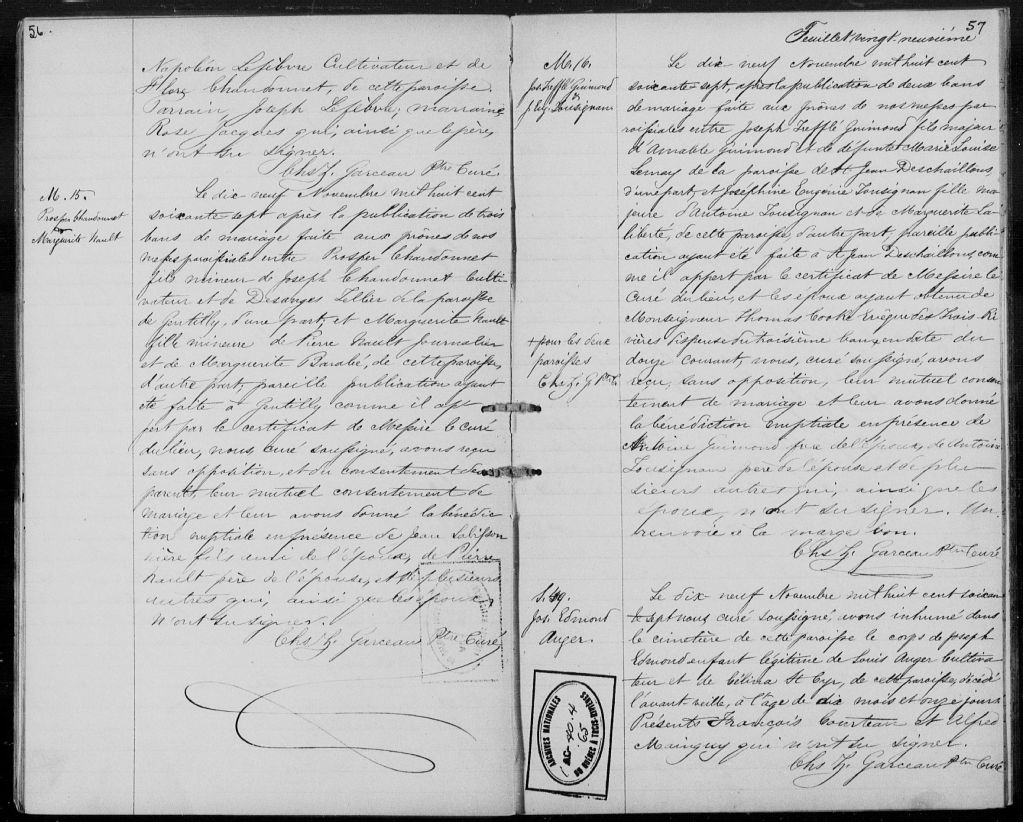 56.
Napoléon Lefibvre Cultivateur et de
Flore Chandonnet, de cette paroisse.
Parrain Joseph Lefibvre; marraine
Rose Jacques qui, ainsi que le père,
n'ont su signer.
Chs Z. Garceau Ptre Curé
M. 15.
Prosper Chandonnet
&
Marguerite Nault
Le dix neuf Novembre mil huit cent
soixante sept après la publication de trois
bans de mariage faite aux prônes de nos
messes paroissiales entre Prosper Chandonnet
fils mineur de Joseph Chandonnet Culti-
vateur et de Desanges Tellier de la paroisse
de Gentilly, d'une part, et Marguerite Nault
fille mineure de Pierre Nault Journalier
et de Marguerite Barabé, de cette paroisse,
d'autre part; pareille publication ayant
été faite à Gentilly comme il ap-
pert par le certificat de Messire le Curé
du lieu, nous, curé soussigné, avons reçu
sans opposition, et du consentement des
parents, leur mutuel consentement de
mariage et leur avons donné la bénédic-
tion nuptiale en présence de Jean Labisson
nière ami de l'époux, de Pierre
Nault père de l'épouse, et de plusieurs
autres qui, ainsi que les époux,
n'ont su signer.
Chs Z. Garceau Ptre Curé
57
Feuillet vingt-neuvième
M. 16.
Jos. Trefflé Guimond
&
J. Eug. Tousignan
Le dix neuf Novembre mil huit cent
soixante sept, après la publication de deux bans
de mariage faite aux prônes de nos messes pa-
roissiales entre Joseph Trefflé Guimond fils majeur
d'Amable Guimond et de défunte Marie Louise
Lemay de la paroisse de St Jean Deschaillons,
d'une part, et Josephine Eugénie Tousignan fille ma-
jeure d'Antoine Tousignan et de Marguerite La-
liberté, de cette paroisse, d'autre part, pareille publi-
cation ayant été faite à St Jean Deschaillons, com-
me il appert par le certificat de Messire le
Curé du lieu, et les époux ayant obtenu de
Monseigneur Thomas Cooke Evêque des Trois Ri-
vières dispense du troisième ban, en date du
douze courant, nous, curé soussigné, avons
+ pour les deux
paroisses
Chs Z. G Ptre C.
reçu, sans opposition, leur mutuel consen-
tement de mariage et leur avons donné
la bénédiction nuptiale en présence de
Antoine Guimond frère de l'époux, de Antoine
Tousignan père de l'épouse et de plu-
sieurs autres qui, ainsi que les
époux, n'ont su signer. Un
renvoi à la marge bon.
Chs Z. Garceau Ptre Curé
S. 49.
Jos. Edmond
Auger.
Le dix neuf Novembre mil huit cent soixan-
te sept nous curé soussigné, avons inhumé dans
le cimetière de cette paroisse le corps de Joseph
Edmond enfant légitime de Louis Auger Cultiva-
teur et de Célina St Cyr, de cette paroisse, décédé
l'avant veille, à l'âge de dix mois et onze jours.
Présents François Courteau et Alfred
Mainguy qui n'ont su signer.
Chs Z. Garceau Ptre Curé
ARCHIVES NATIONALES
AC-40.4
65
DU QUÉBEC À TROIS-RIVIÈRES